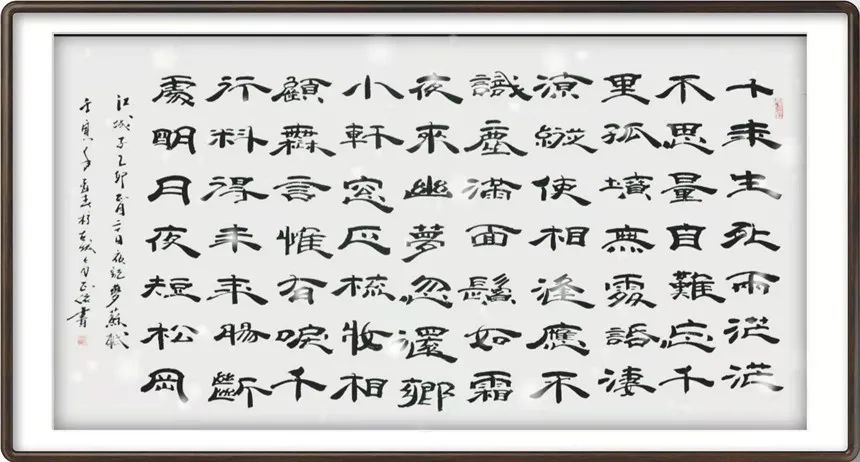 十年生死兩茫茫
不思量自難忘千
里孤墳無處話淒
涼縱使相逢應不
識塵滿面鬢如霜
夜來幽夢忽還鄉
小軒窗正梳妝相
顧無言惟有淚千
行料得年年腸斷
處明月夜短松岡
江城子乙卯正月二十日夜記夢蘇軾
壬寅年書